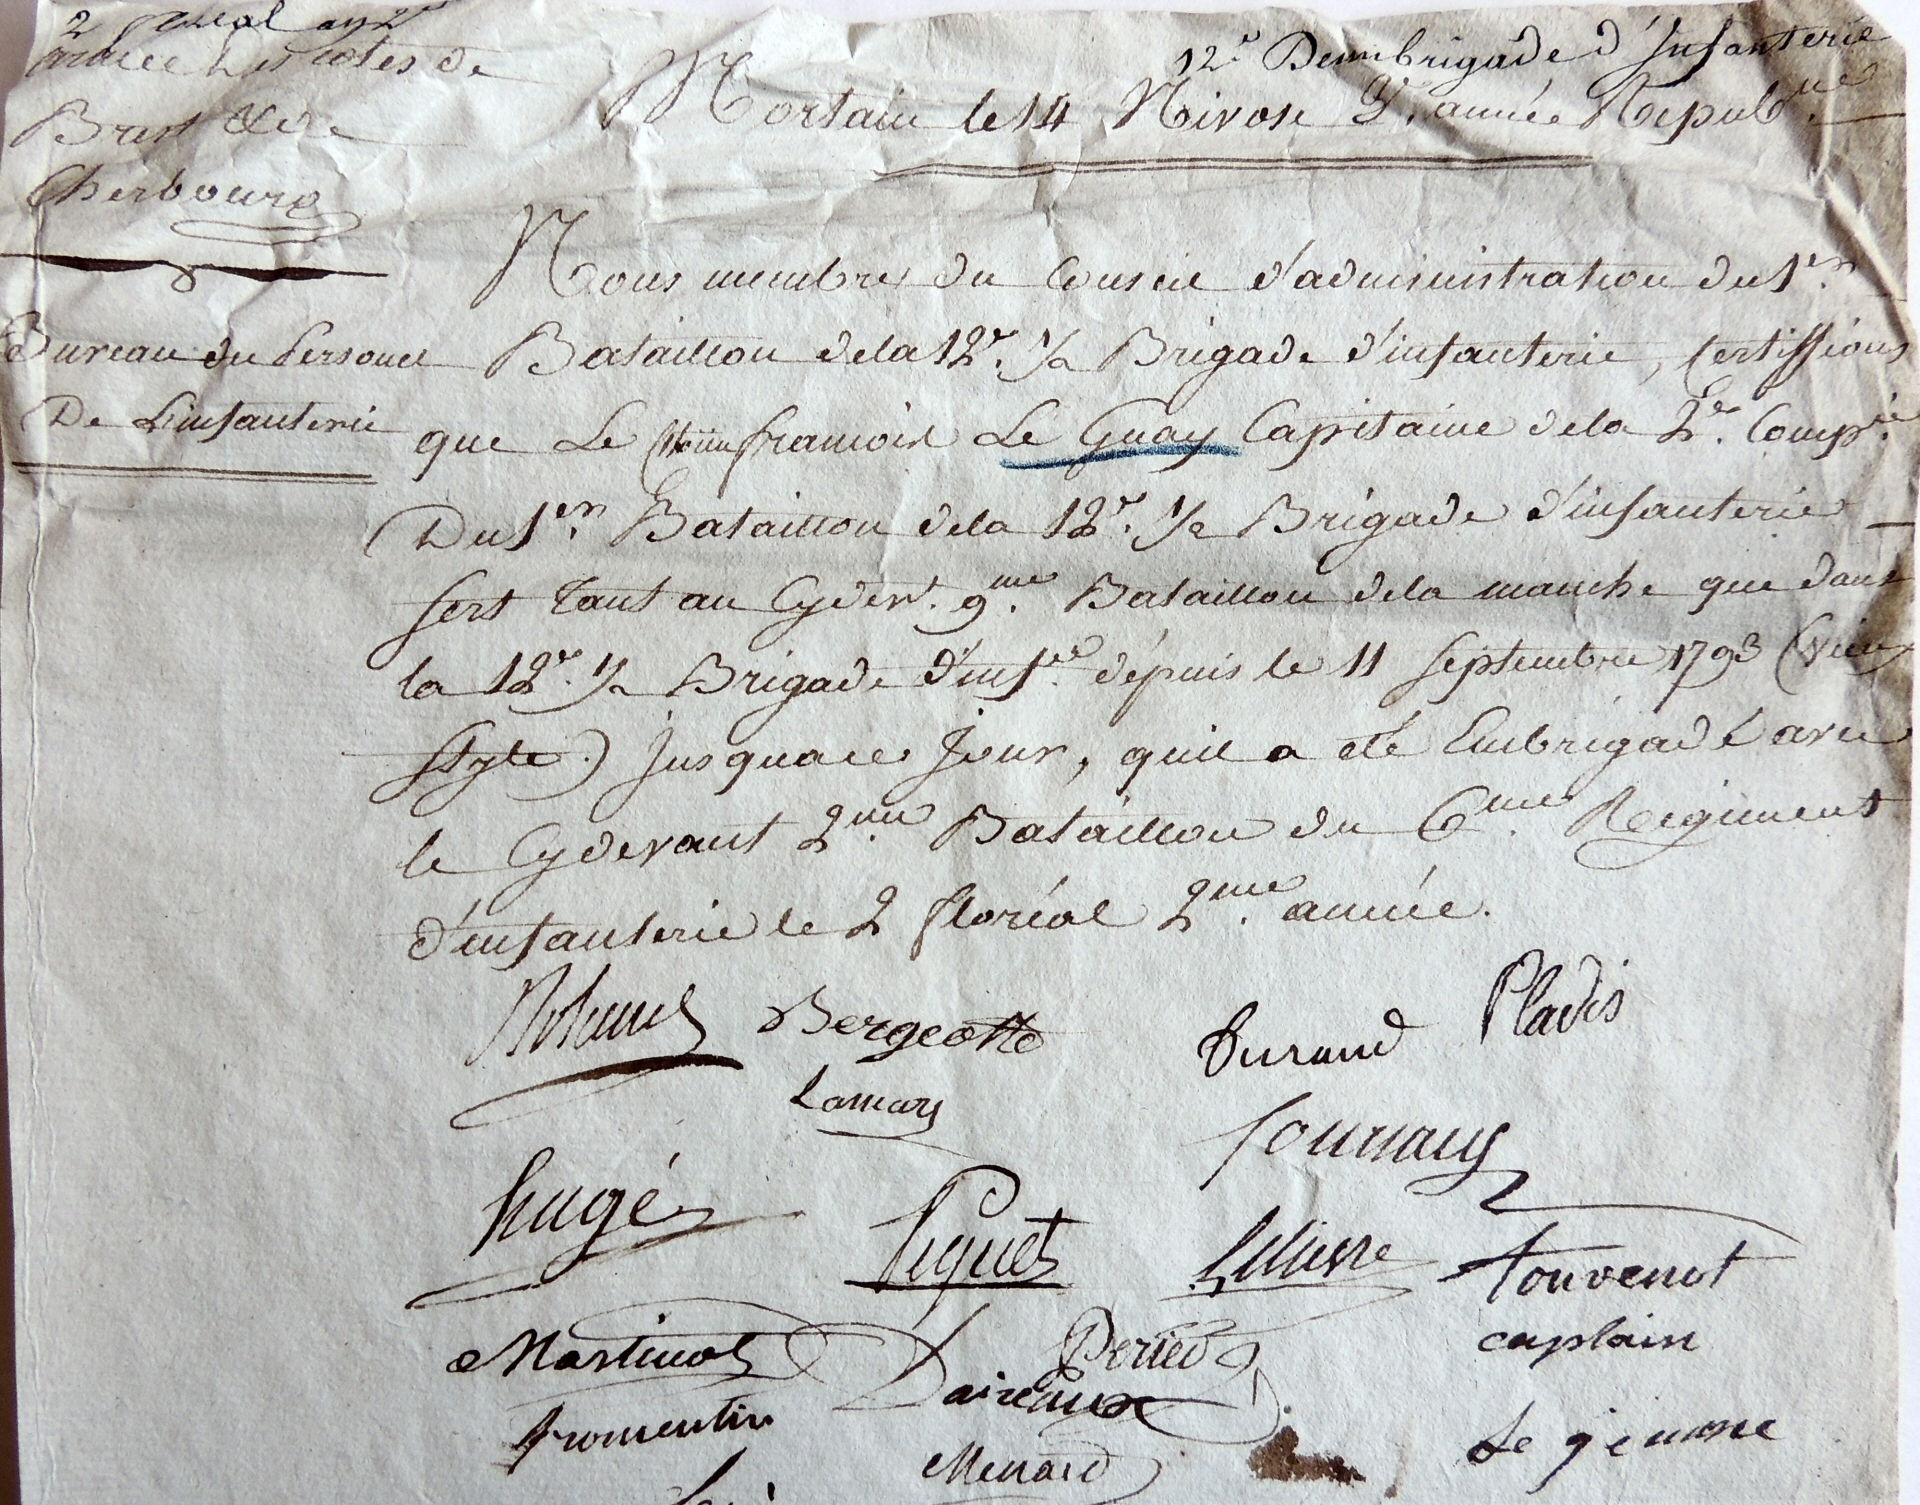 2 floreal an 2e
armée des cotes de
Brest & de
Cherbourg
Bureau du Personel
De L'infanterie
12e Demibrigade d'Infanterie
Mortain le 14 Nivose 3e. année Republ.que
Nous membres du Conseil d'administration du 1er.
Bataillon dela 12e. 1/2 Brigade d'infanterie, Certiffions
que Le françois Le Guay Capitaine dela 2e. Comp.ie
Du 1er. Bataillon dela 12e. 1/2 Brigade d'infanterie
sert tant au Cydevt. 9me. Bataillon dela manche que dans
la 12e. 1/2 Brigade d'inf.ie dépuis le 11 Septembre 1793 (vieux
Style.) Jusquace Jour, quil a été Embrigadé avec
le Cydevant 2me. Bataillon du 6me. Regiment
d'infanterie le 2 floréal 2me. année.
Bergeotte Durand Pladis
Lamary
Fournaux
hugé Piquet Lelievre Touvenot
captain
Martinot Daireaux Perier
fromentin Menard